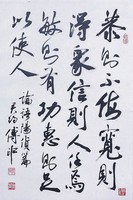 恭則不侮寬則
得眾信則人任焉
敏則有功惠則足
以使人
論語陽貨篇